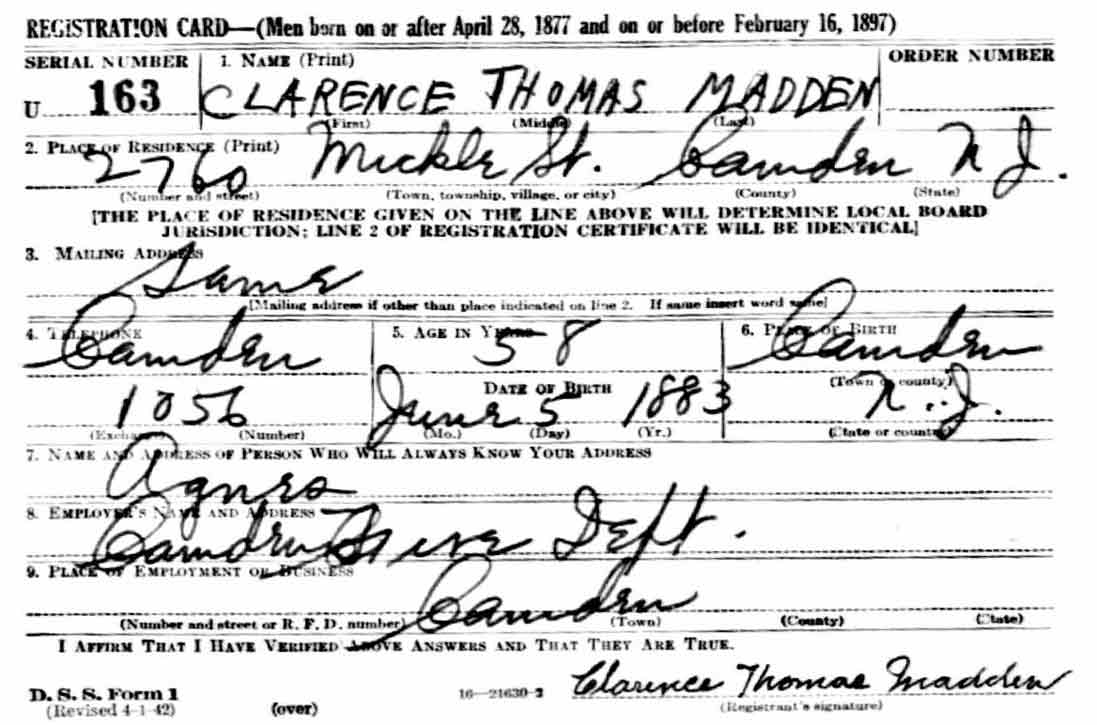 REGISTRATION CARD—(Men born on or after April 28, 1877 and on or before February 16, 1897)
SERIAL NUMBER 1. NAME (Print) ORDER NUMBER
U 163 CLARENCE THOMAS MADDEN
(First) (Middle) (Last)
2. PLACE OF RESIDENCE (Print)
2760 Mickle St. Camden N J.
(Number and street) (Town, township, village, or city) (County) (State)
[THE PLACE OF RESIDENCE GIVEN ON THE LINE ABOVE WILL DETERMINE LOCAL BOARD
JURISDICTION; LINE 2 OF REGISTRATION CERTIFICATE WILL BE IDENTICAL]
3. MAILING ADDRESS
Same
[Mailing address if other than place indicated on line 2. If same insert word same]
4. TELEPHONE 5. AGE IN YEARS 6. PLACE OF BIRTH
Camden 58 Camden
DATE OF BIRTH (Town or county)
1056 June 5 1883 N. J.
(Exchange) (Number) (Mo.) (Day) (Yr.) (State or country)
7. NAME AND ADDRESS OF PERSON WHO WILL ALWAYS KNOW YOUR ADDRESS
Agnes
8. EMPLOYER'S NAME AND ADDRESS
Camden Fire Dept.
9. PLACE OF EMPLOYMENT OR BUSINESS
Camden
(Number and street or R. F. D. number) (Town) (County) (State)
I AFFIRM THAT I HAVE VERIFIED ABOVE ANSWERS AND THAT THEY ARE TRUE.
Clarence Thomas Madden
D. S. S. Form 1 16—21630-2 (Registrant's signature)
(Revised 4-1-42) (over)